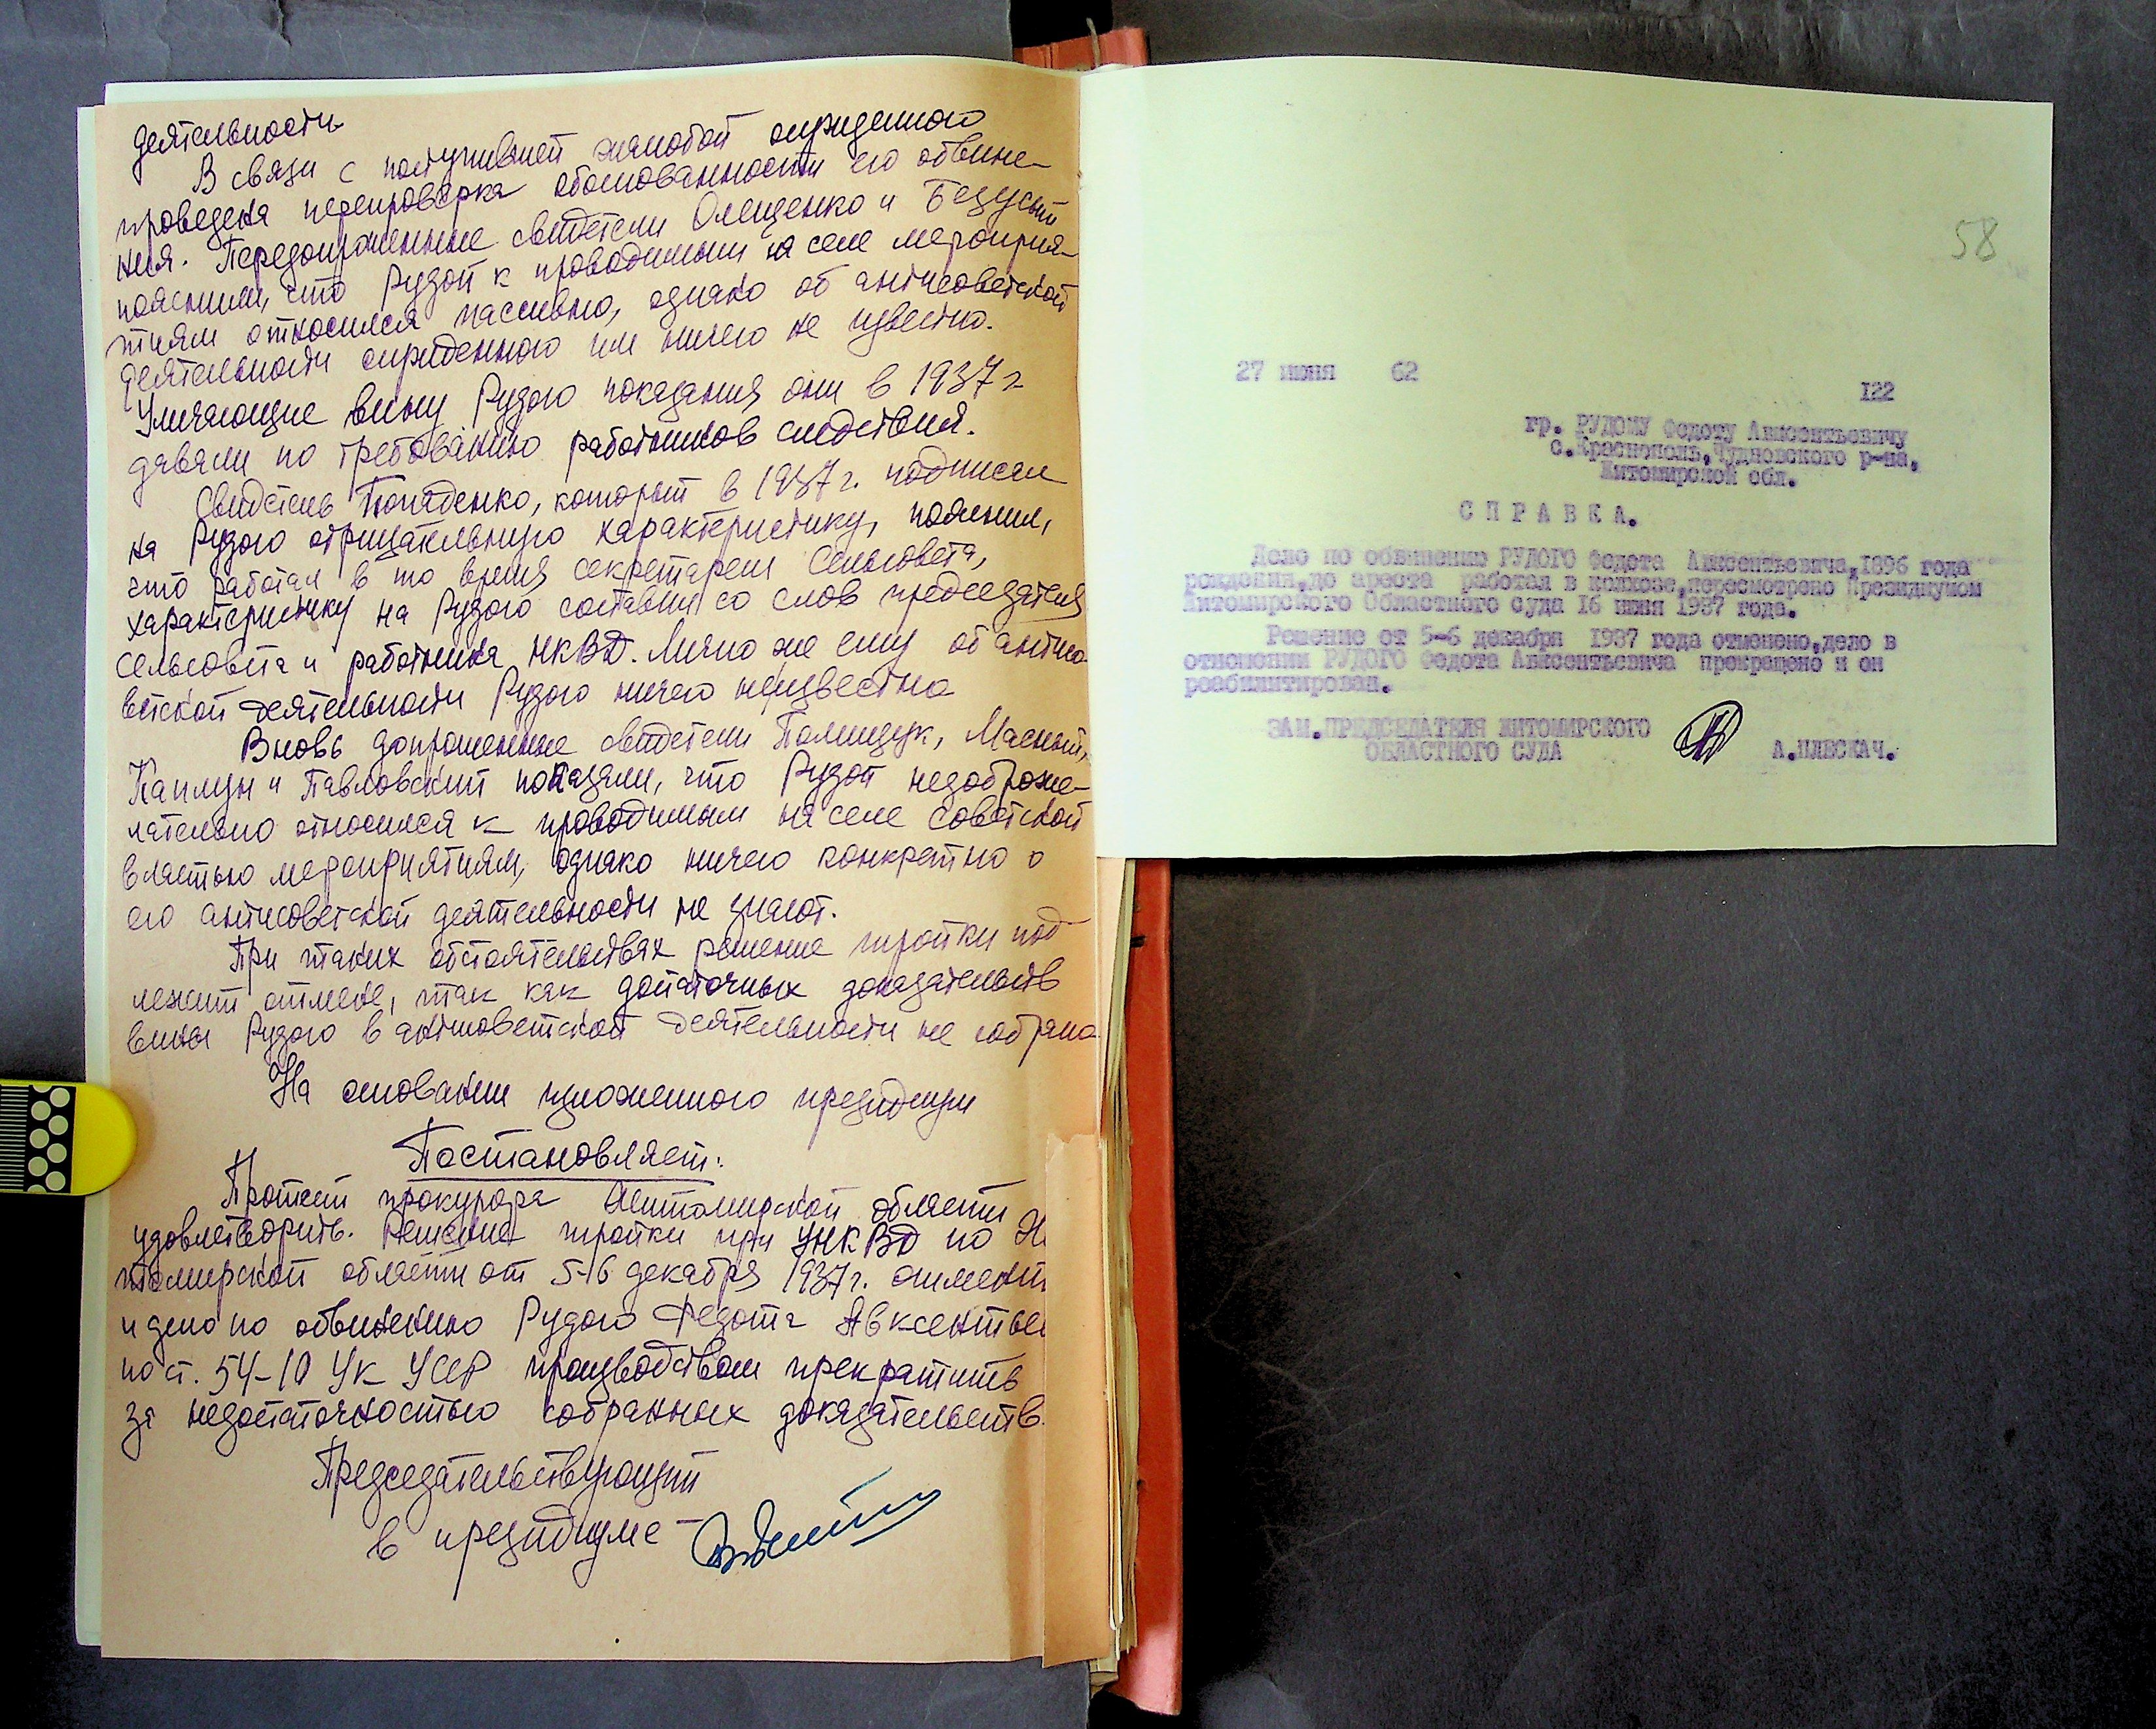 деятельности
В связи с поступившей жалобой осужденного
проведена перепроверка обоснованности его обвине-
ния. Передопрошенные свидетели Олещенко и Безусый
пояснили, что Рудой к проводимым на селе мероприя-
тиям относился пассивно, однако об антисоветской
деятельности осужденного им ничего не известно.
Уличающие вину Рудого показания они в 1937 г
давали по требованию работников следствия.
Свидетель, который в 1937 г. подписал
на Рудого отрицательную характеристику, пояснил,
что работал в то время секретарем сельсовета,
характеристику на Рудого составил со слов председателя
сельсовета и работника НКВД. Лично же ему об антисо-
ветской деятельности Рудого ничего неизвестно
Вновь допрошенные свидетели Полищук, Масный,
Каплун и Павловский показали, что Рудой недоброже-
лательно относился к проводимым на селе советской
властью мероприятиям, однако ничего конкретно о
его антисоветской деятельности не знают.
При таких обстоятельствах решение тройки под
лежит отмене, так как достаточных доказательств
вины Рудого в антисоветской деятельности не собрано
На основании изложенного президиум
Постановляет:
Протест прокурора Житомирской области
удовлетворить. Решение тройки при УНКВД по Жи
томирской области от 5-6 декабря 1937 г. отменить
и дело по обвинению Рудого Федота Авксентьев
по ст. 54-10 УК УССР производством прекратить
за недостаточностью собранных доказательств.
Председательствующий
в президиуме –
58
27 июня 62
122
гр. РУДОМУ Федоту Авксентьевичу
с.Краснополь,Чудновского р-на,
Житомирской обл.
СПРАВКА.
Дело по обвинению РУДОГО Федота Авксентьевича,1896 года
рождения,до ареста работал в колхозе,пересмотрено Президиумом
Житомирского Областного суда 16 июня 1937 года.
Решение от 5-6 декабря 1937 года отменено,дело в
отношении РУДОГО Федота Авксентьевича прекращено и он
реабилитирован.
ЗАМ.ПРЕДСЕДАТЕЛЯ ЖИТОМИРСКОГО
ОБЛАСТНОГО СУДА А.ПЛЕСКАЧ.